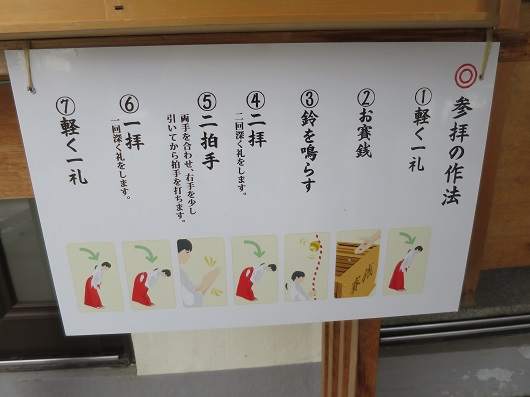 ◎参拝の作法
①軽く一礼
②お賽銭
③鈴を鳴らす
④二拝
二回深く礼をします。
⑤二拍手
両手を合わせ、右手を少し
引いてから拍手を打ちます。
⑥一拝
一回深く礼をします。
⑦軽く一礼